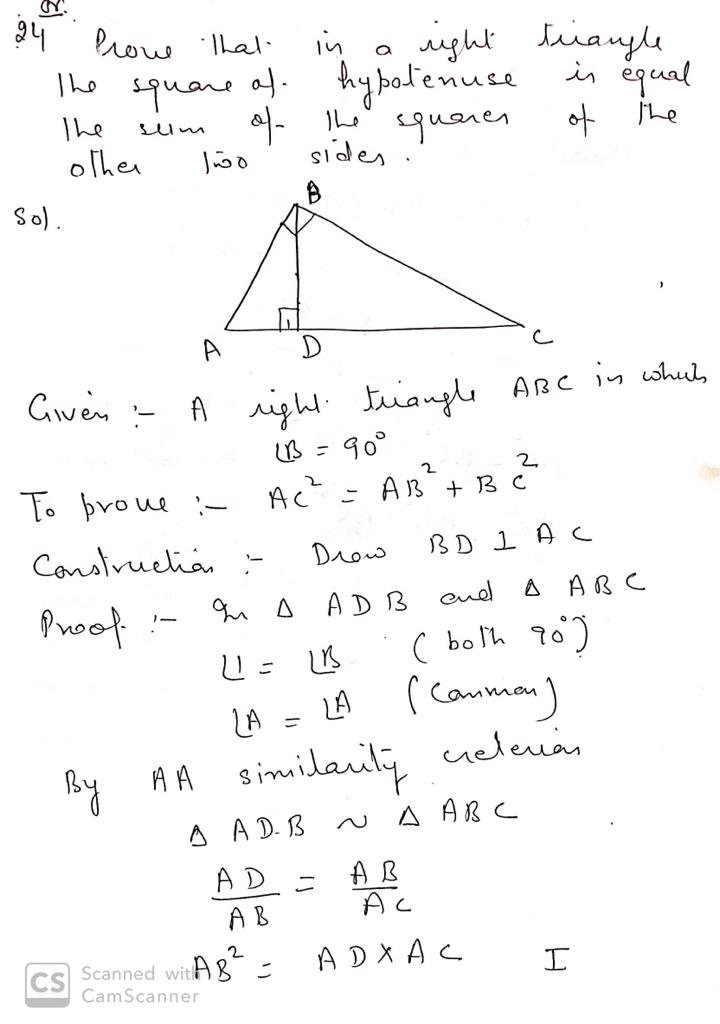 Or.
24 Prove that in a right triangle
the square of hypotenuse is equal
the sum of the squares of the
other two sides.
Sol.
B
A D C
1
Given :- A right triangle ABC in which
∠B = 90°
To prove :- AC² = AB² + BC²
Construction :- Draw BD ⊥ AC
Proof :- In Δ ADB and Δ ABC
∠1 = ∠B (both 90°)
∠A = ∠A (common)
By AA similarity criterion
Δ ADB ~ Δ ABC
AD/AB = AB/AC
AB² = AD × AC I
CS Scanned with
CamScanner